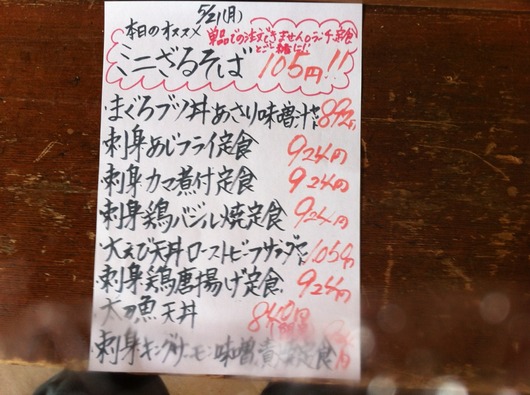 5/21(月)
本日のオススメ 単品での注文できません。ランチ、定食とご一緒に!!
ミニざるそば 105円!!
・まぐろブツ丼あさり味噌汁セット 892円
・刺身あじフライ定食 924円
・刺身カマ煮付定食 924円
・刺身鶏バジル焼定食 924円
・大えび天丼ローストビーフサラダセット 1050円
・刺身鶏唐揚げ定食 924円
・太刀魚天丼 840円
・刺身キングサーモン味噌 定食 円